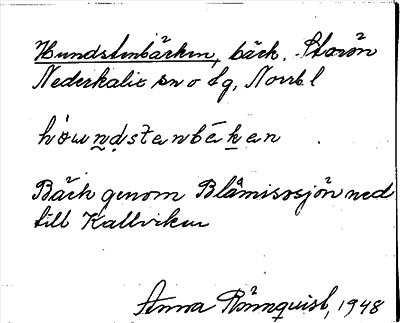 Hundstenbäcken, bäck. Storön
Nederkalix sn o tg, Norrb l
hòwndstenbékan
Bäck genom Blåmissjön ned
till Kallviken
Anna Rönnquist, 1948